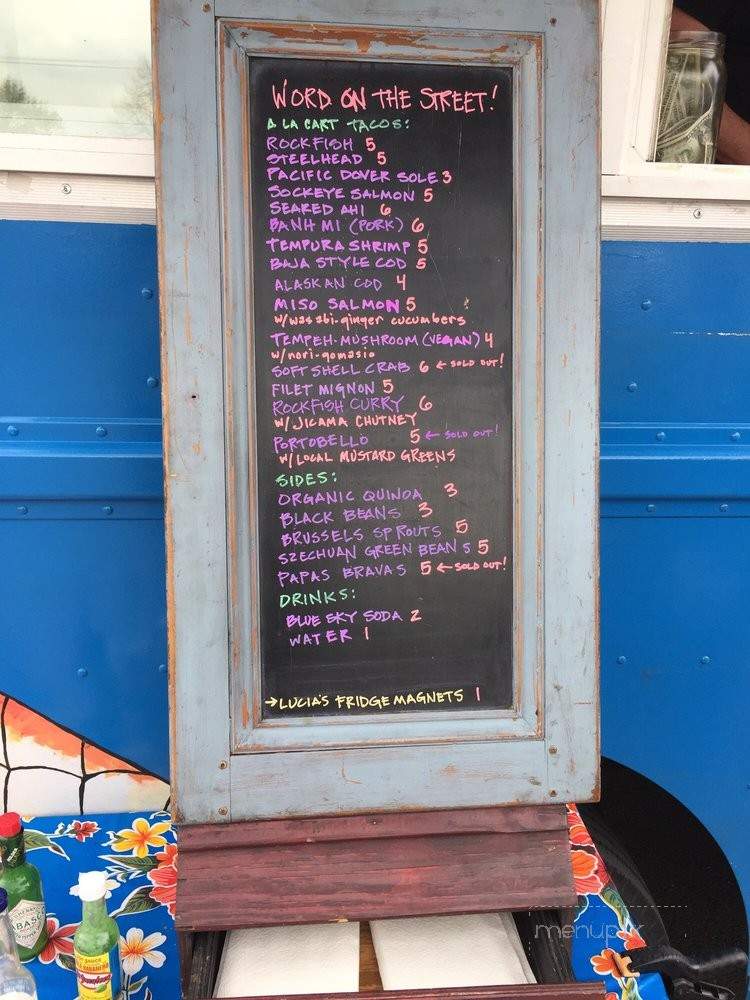 WORD ON THE STREET!
A LA CART TACOS:
ROCKFISH 5
STEELHEAD 5
PACIFIC DOVER SOLE 3
SOCKEYE SALMON 5
SEARED AHI 6
BANH MI (PORK) 6
TEMPURA SHRIMP 5
BAJA STYLE COD 5
ALASKAN COD 4
MISO SALMON 5
w/wasabi-ginger cucumbers
TEMPEH-MUSHROOM (VEGAN) 4
w/nori-gomasio
SOFT SHELL CRAB 6 ← SOLD OUT!
FILET MIGNON 5
ROCKFISH CURRY 6
W/JICAMA CHUTNEY
PORTOBELLO 5 ← SOLD OUT!
W/LOCAL MUSTARD GREENS
SIDES:
ORGANIC QUINOA 3
BLACK BEANS 3
BRUSSELS SPROUTS 5
SZECHUAN GREEN BEANS 5
PAPAS BRAVAS 5 ← SOLD OUT!
DRINKS:
BLUE SKY SODA 2
WATER 1
→ LUCIA'S FRIDGE MAGNETS 1
TABASCO
menupix